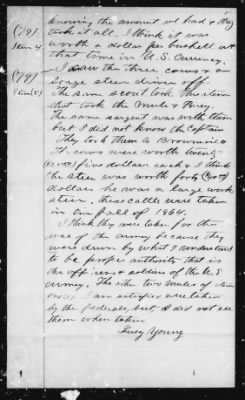 knowing the amount we had & they
(79) took it all. I think it was
Item 4 worth a dollar per bushell at
that time in U.S. Currency.
(79) I saw the three cows & a
Item (5) large steer driven off
The same scout took the steer
that took the Mule &
The same sargent was with them
but I did not know the Captain
They took them a
The cows were worth twenty
five dollars each & I think
the steer was worth forty (40)
dollars he was a large work
steer, these cattle were taken
in the fall of 1864.
I think they were taken for the
use of the army because they
were driven by what I understood
to be proper authority that is
the officers & soldiers of the U.S
army. The other two mules of
I am satisfied were taken
by the federals, but I did not see
them when taken
Young